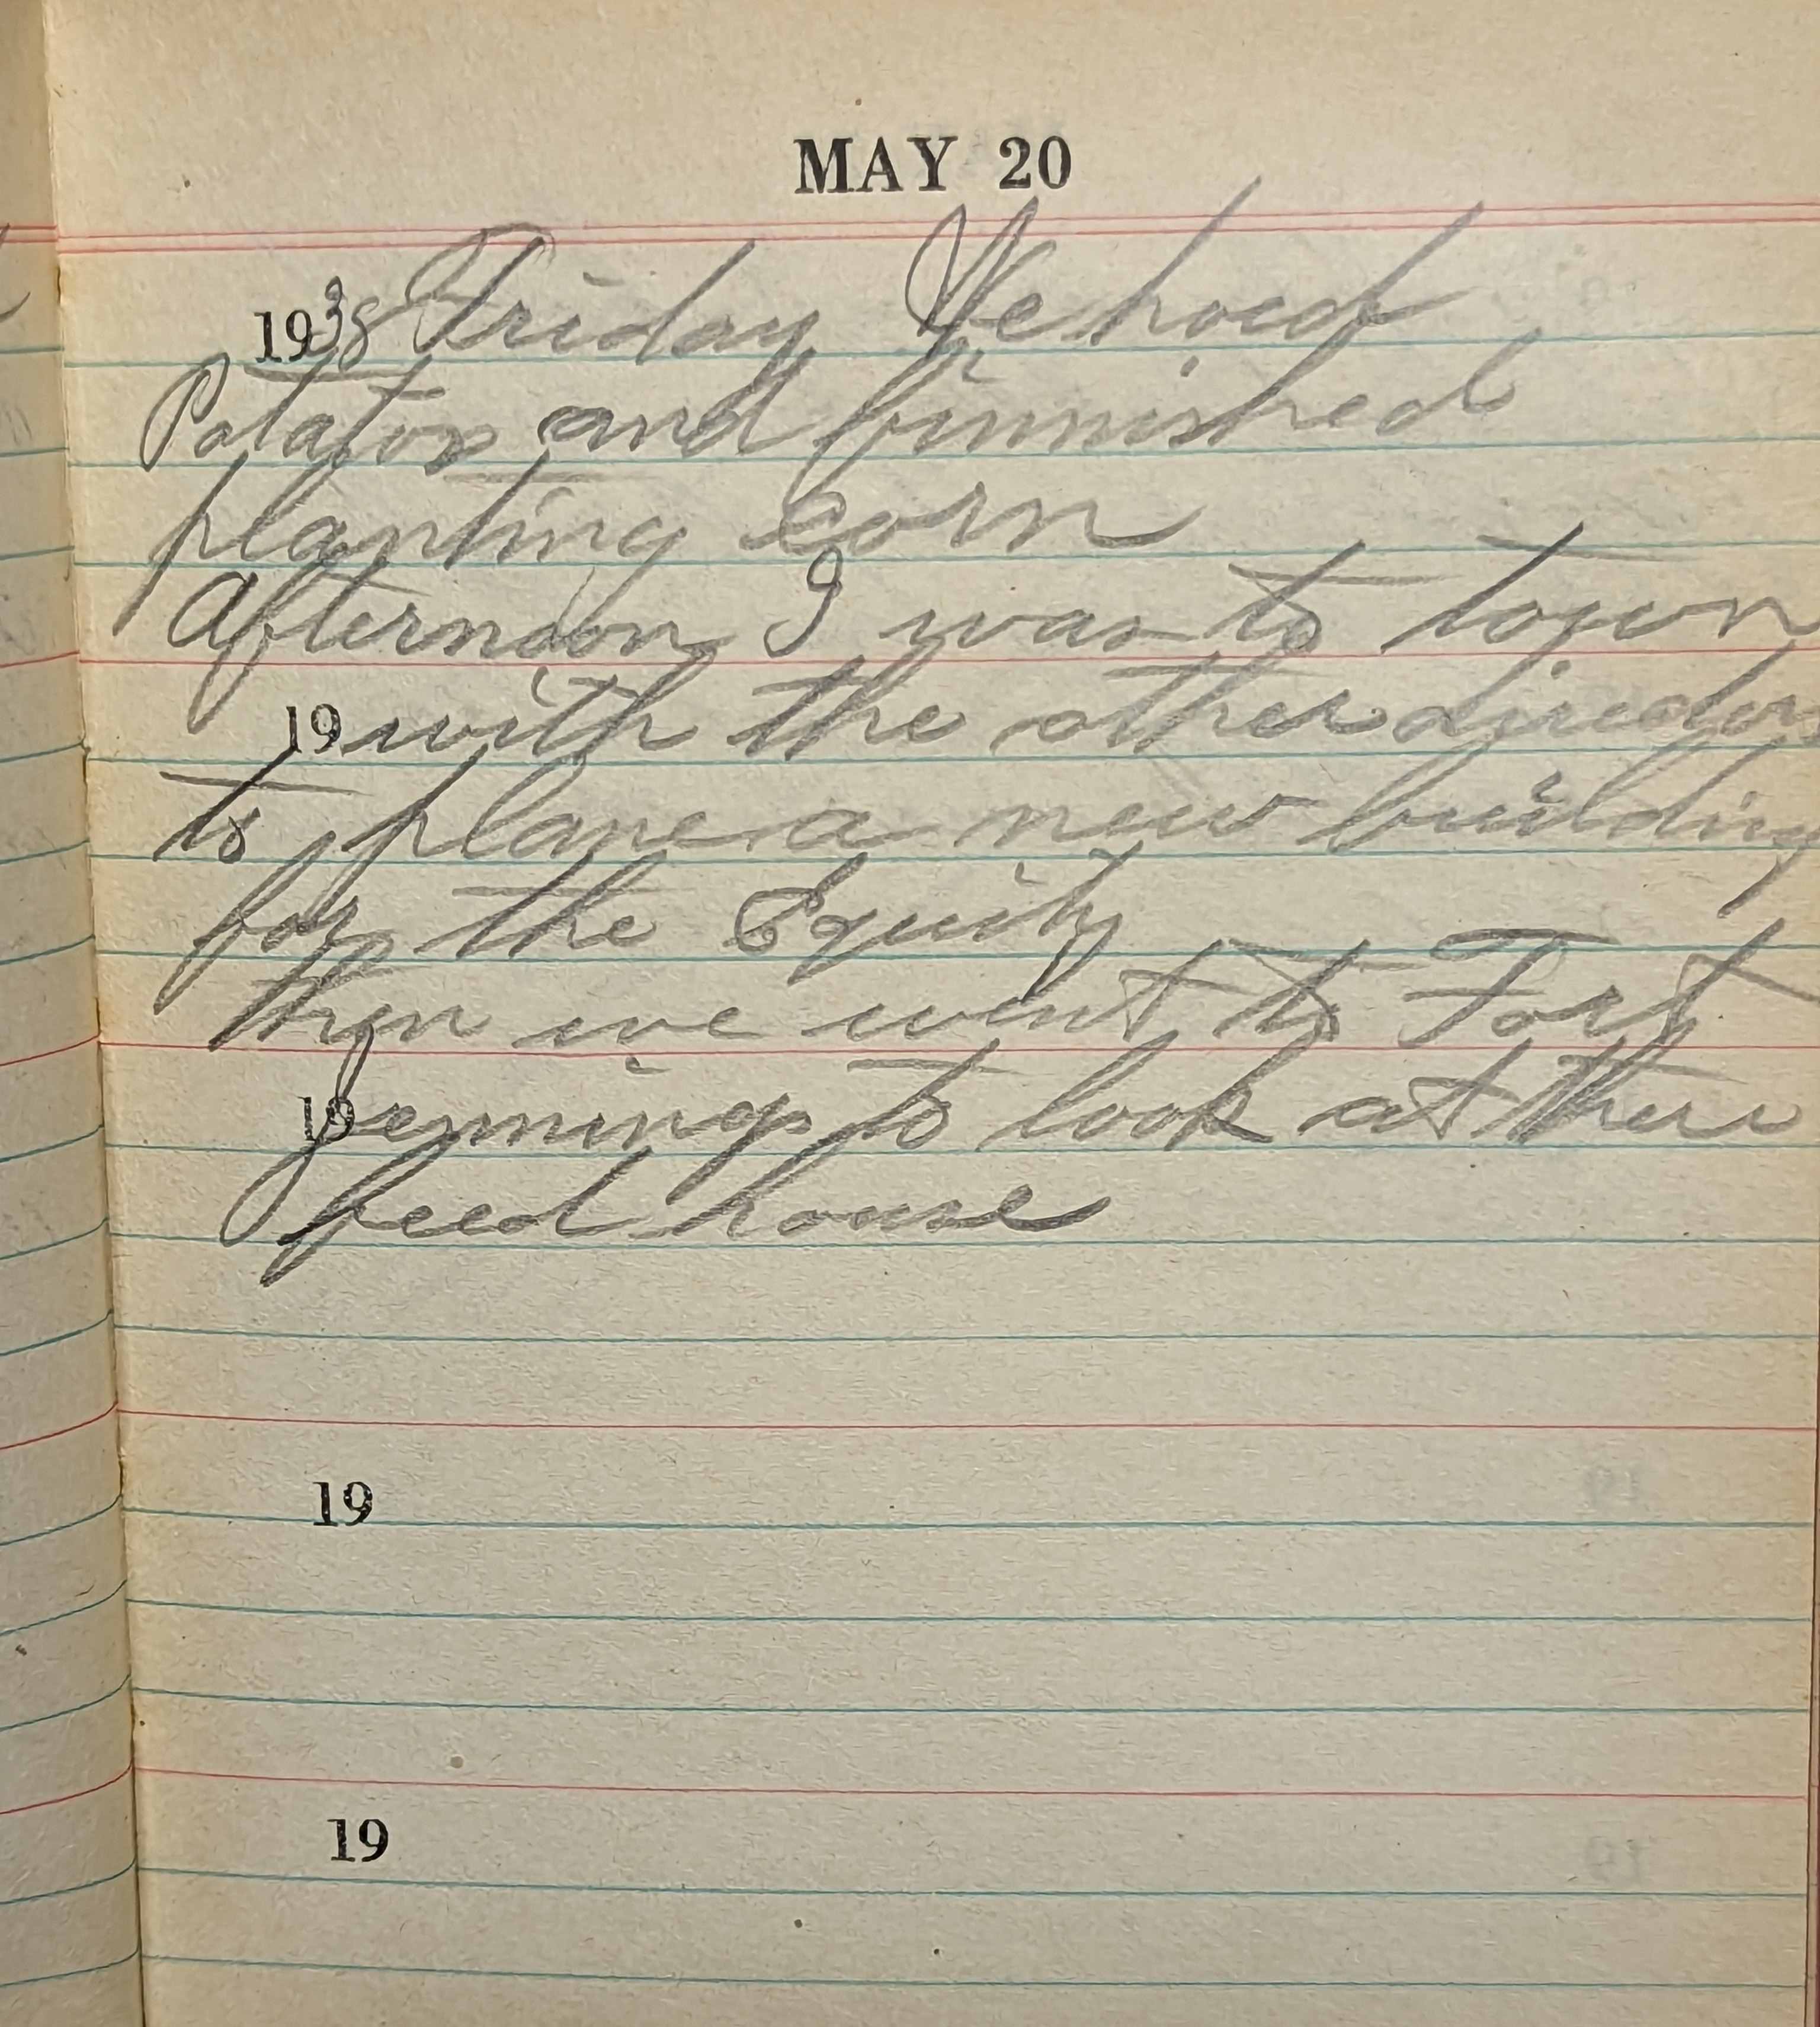 MAY 20
1938 Friday We hoed
Potatos and finnished
planting corn
Afternoon I was to town
19 with the other directors
to plane a new building
for the Equity
then we went to Fort
19 Jennings to look at their
feed house
19
19